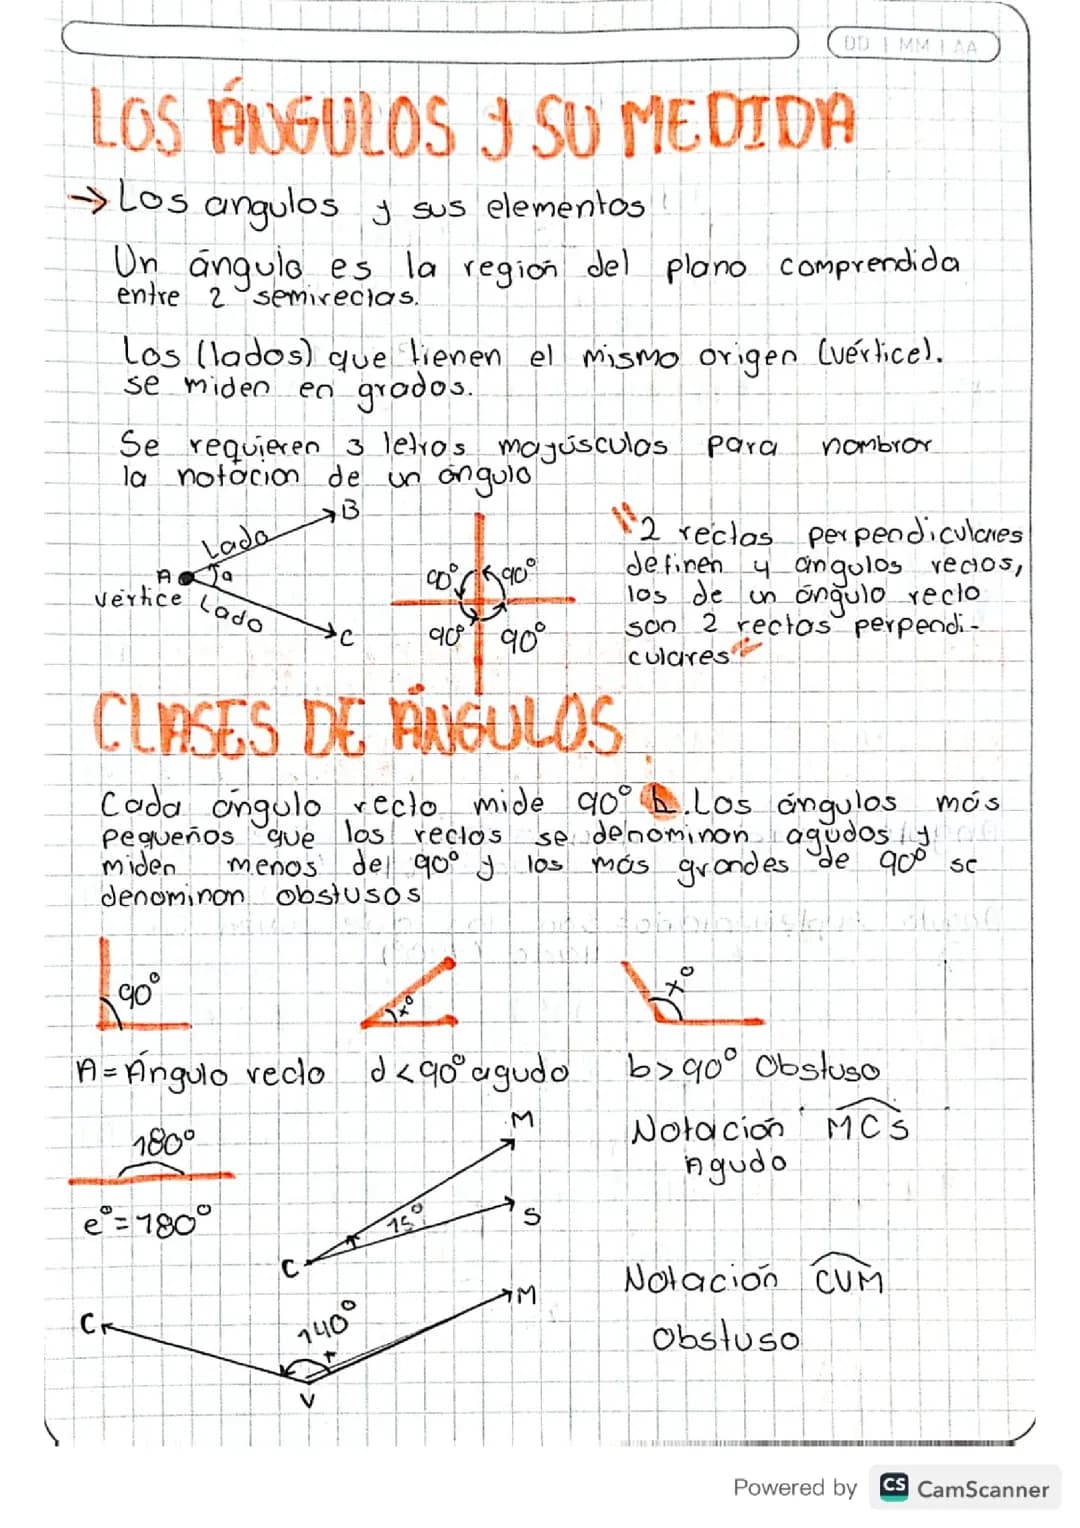 DD | MM | AA
LOS ÁNGULOS Y SU MEDIDA
→ Los angulos y sus elementos
Un ángulo es la región del plano comprendida
entre 2 semirectas.
Los (lados) que tienen el mismo origen (vértice).
se miden en grados.
Se requieren 3 letras mayúsculas para nombrar
la notación de un ángulo
B
Lado
A
a
vértice
Lado
C
90° 90°
90° 90°
"2 rectas perpendiculares
definen 4 ángulos rectos,
los de un ángulo recto
son 2 rectas perpendi-
culares"
CLASES DE ÁNGULOS
Cada ángulo recto mide 90° . Los ángulos más
pequeños que los rectos se denominan agudos y
miden menos del 90° y los más grandes de 90° se
denominan obstusos
90°
x°
x°
A = Ángulo recto
d < 90° agudo
b > 90° Obstuso
180°
e° = 180°
M
15°
S
C
Notación MCS
Agudo
C
140°
M
V
Notación CVM
Obstuso
Powered by CS CamScanner